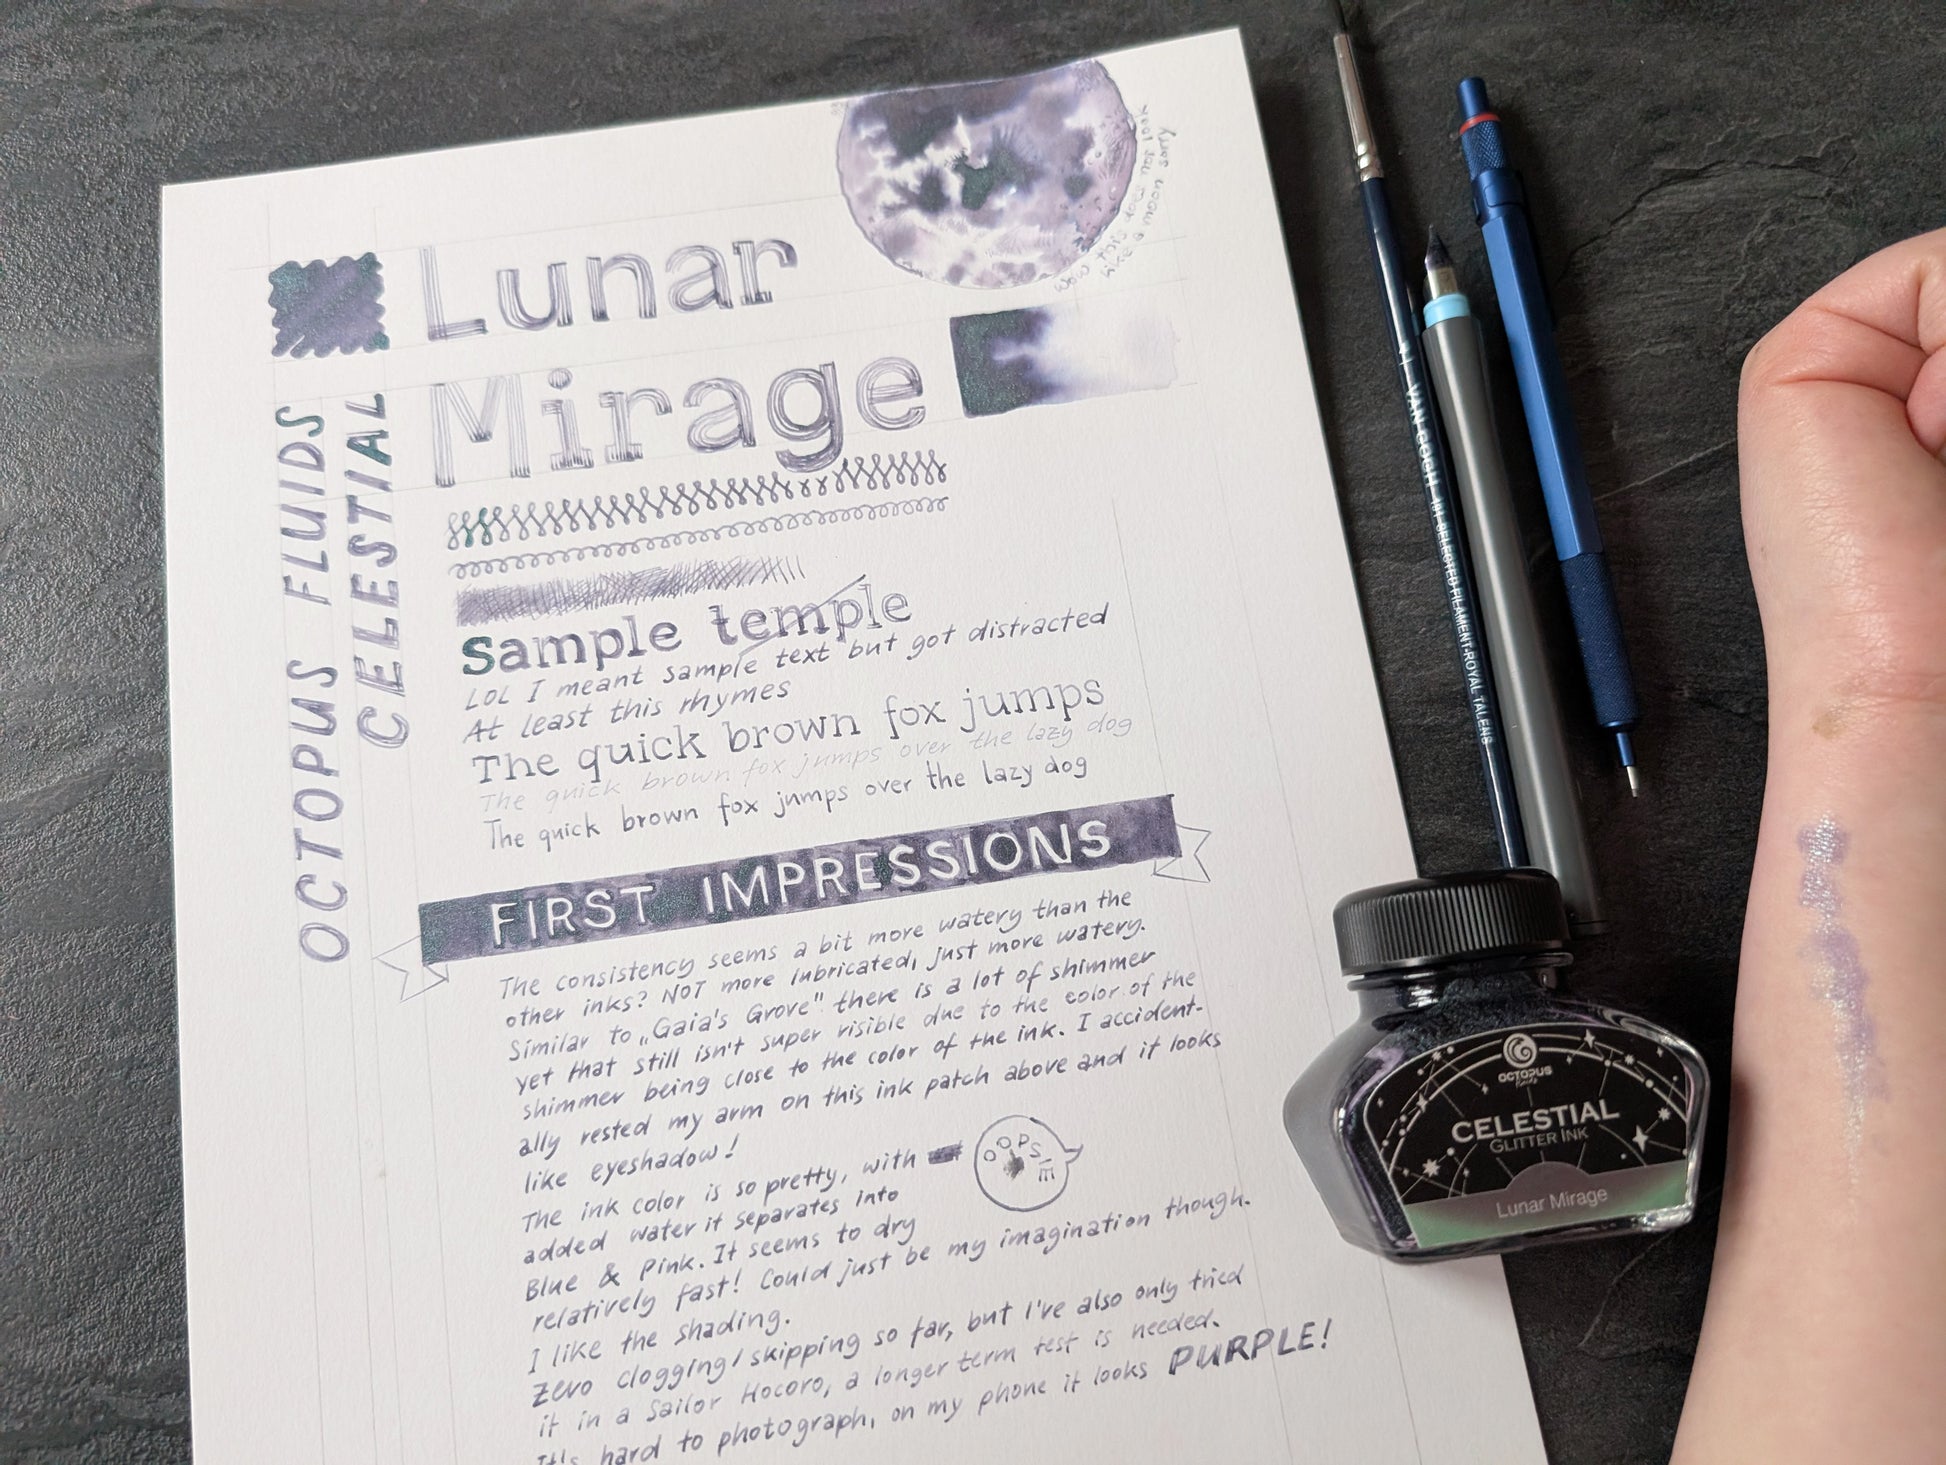 Lunar
Mirage
wow this does not look
like a moon sorry
OCTOPUS FLUIDS
CELESTIAL
Sample temple
LOL I meant sample text but got distracted
At least this rhymes
The quick brown fox jumps
The quick brown fox jumps over the lazy dog
The quick brown fox jumps over the lazy dog
FIRST IMPRESSIONS
The consistency seems a bit more watery than the
other inks? NOT more lubricated, just more watery.
Similar to „Gaia's Grove" there is a lot of shimmer
yet that still isn't super visible due to the color of the
shimmer being close to the color of the ink. I accident-
ally rested my arm on this ink patch above and it looks
like eyeshadow!
The ink color is so pretty, with
added water it separates into
Blue & Pink. It seems to dry
relatively fast! Could just be my imagination though.
I like the shading.
Zero clogging/skipping so far, but I've also only tried
it in a Sailor Hocoro, a longer term test is needed.
It's hard to photograph, on my phone it looks PURPLE!
OOPSIE
VAN GOGH 191 SELECTED FILAMENT ROYAL TALENS
OCTOPUS
Fluids
CELESTIAL
GLITTER INK
Lunar Mirage